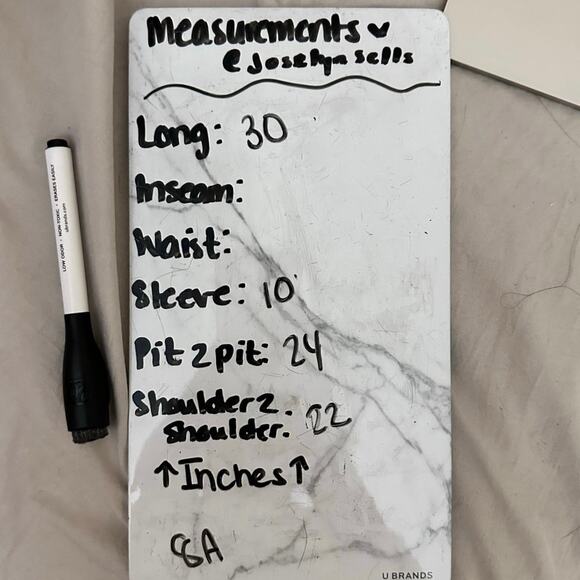 Measurements
@Joselynsells
Long: 30
Inseam:
Waist:
Sleeve: 10
Pit 2 pit: 24
Shoulder 2.
Shoulder. 22
↑Inches↑
8A
U BRANDS
LOW ODOR • NON-TOXIC • ERASES EASILY
ubrands.com